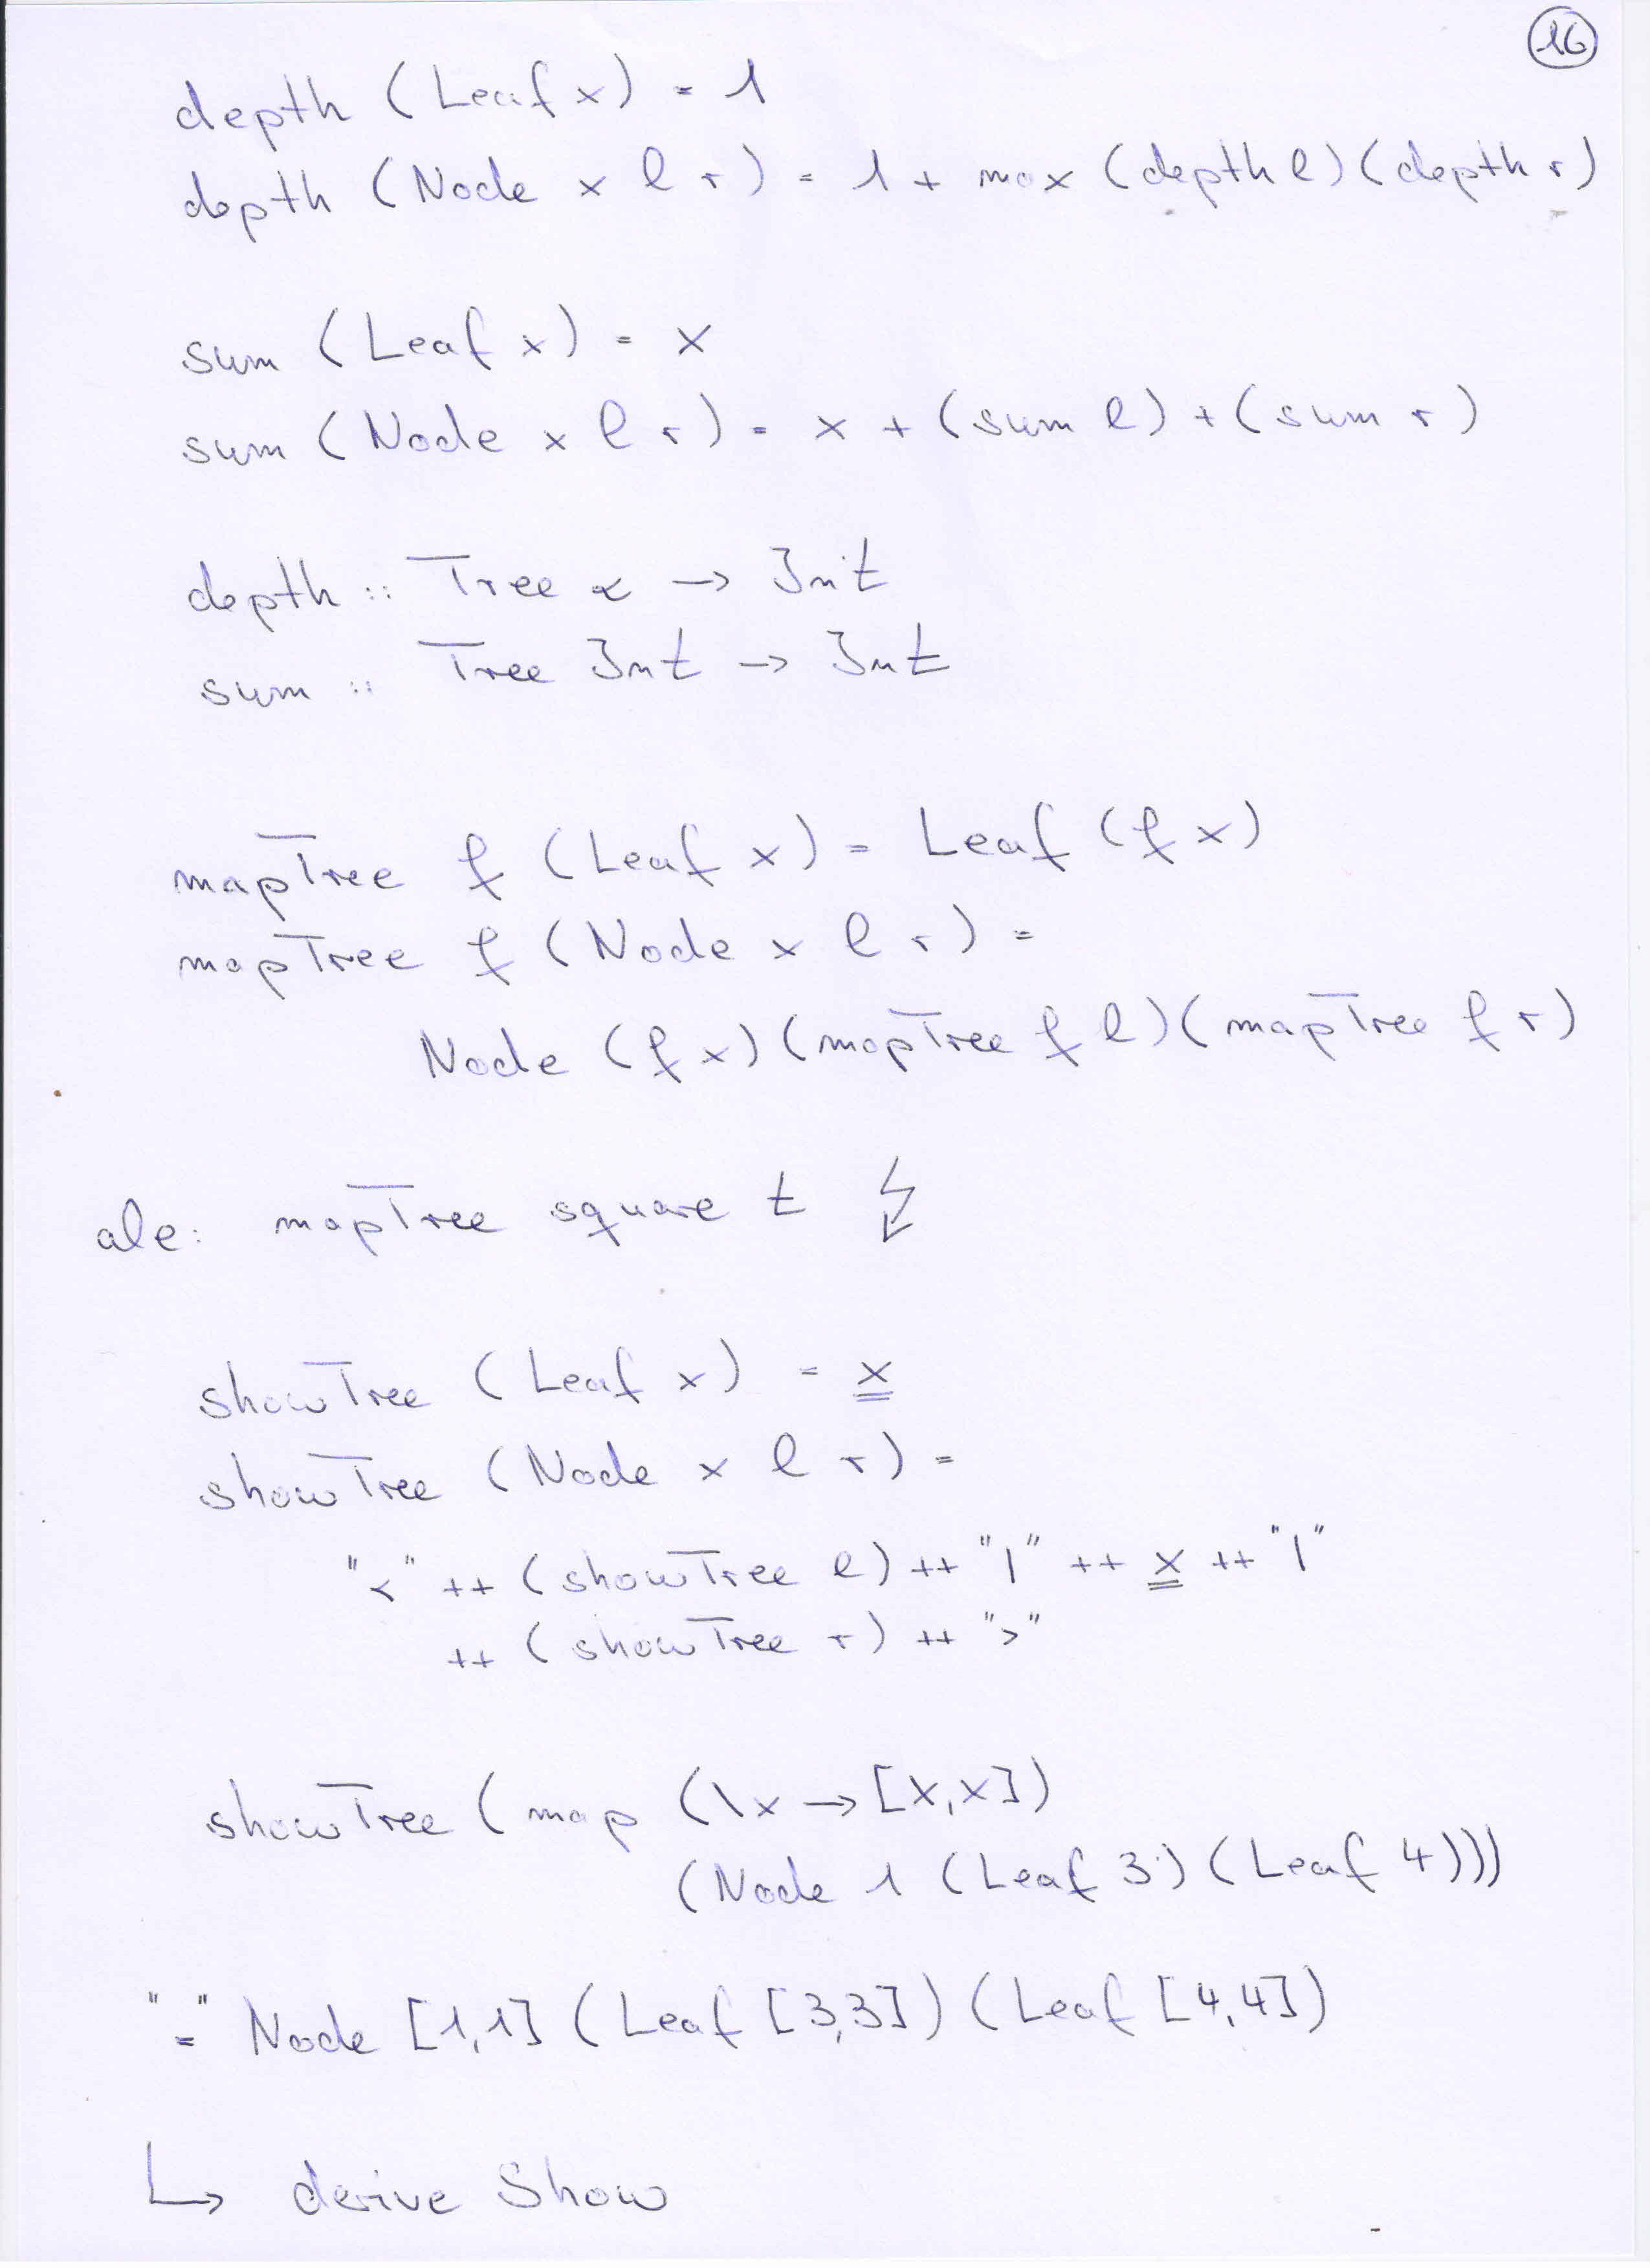 16
depth (Leaf x) = 1
depth (Node x l r) = 1 + max (depth l) (depth r)
sum (Leaf x) = x
sum (Node x l r) = x + (sum l) + (sum r)
depth :: Tree α → Int
sum :: Tree Int → Int
mapTree f (Leaf x) = Leaf (f x)
mapTree f (Node x l r) =
Node (f x) (mapTree f l) (mapTree f r)
ale: mapTree square t ↯
showTree (Leaf x) = x
showTree (Node x l r) =
"<" ++ (showTree l) ++ "|" ++ x ++ "|"
++ (showTree r) ++ ">"
showTree (map (\x → [x,x])
(Node 1 (Leaf 3) (Leaf 4)))
"=" Node [1,1] (Leaf [3,3]) (Leaf [4,4])
↳ derive Show